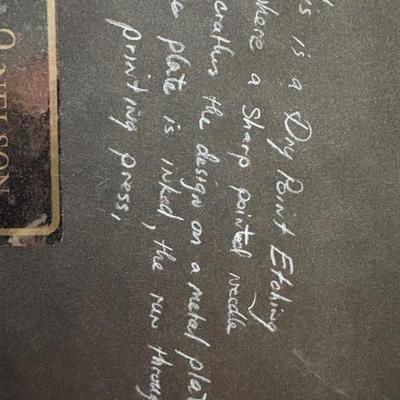 is is a Dry Point Etching
where a sharp pointed needle
scraths the design on a metal plat
plate is inked, the run throug
printing press,
O NELSON